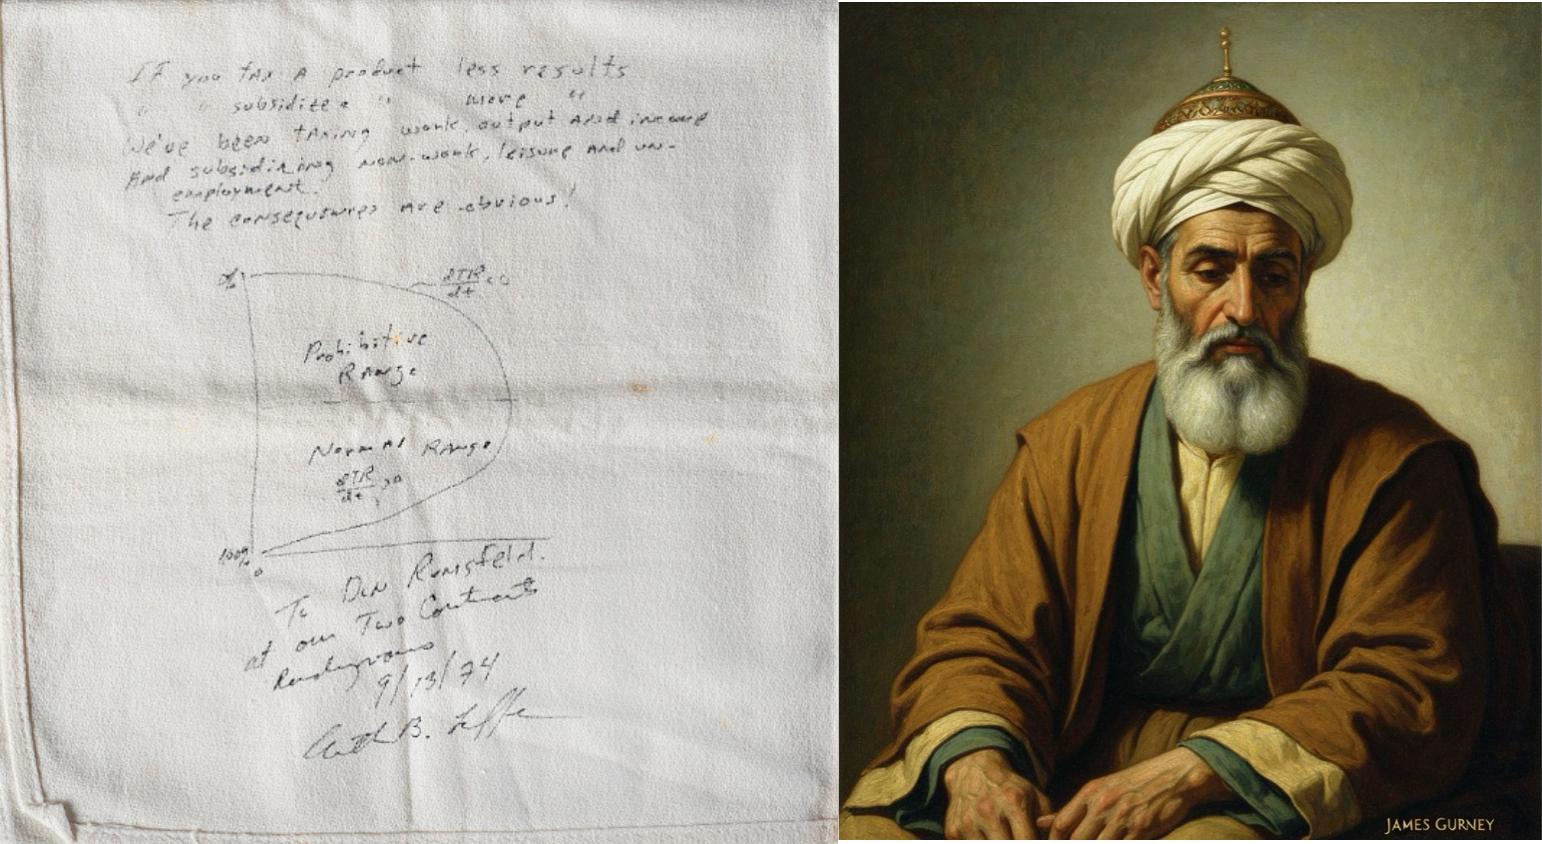 If you tax a product less results
" " subsidize " " more "
We've been taxing work, output and income
and subsidizing non-work, leisure and un-
employment.
The consequences are obvious!
%
dTR/dt <0
Prohibitive
Range
Normal Range
dTR/dt >0
100%
0
To Don Rumsfeld.
at our Two Continents
Rendezvous
9/13/74
Arthur B. Laffer
JAMES GURNEY